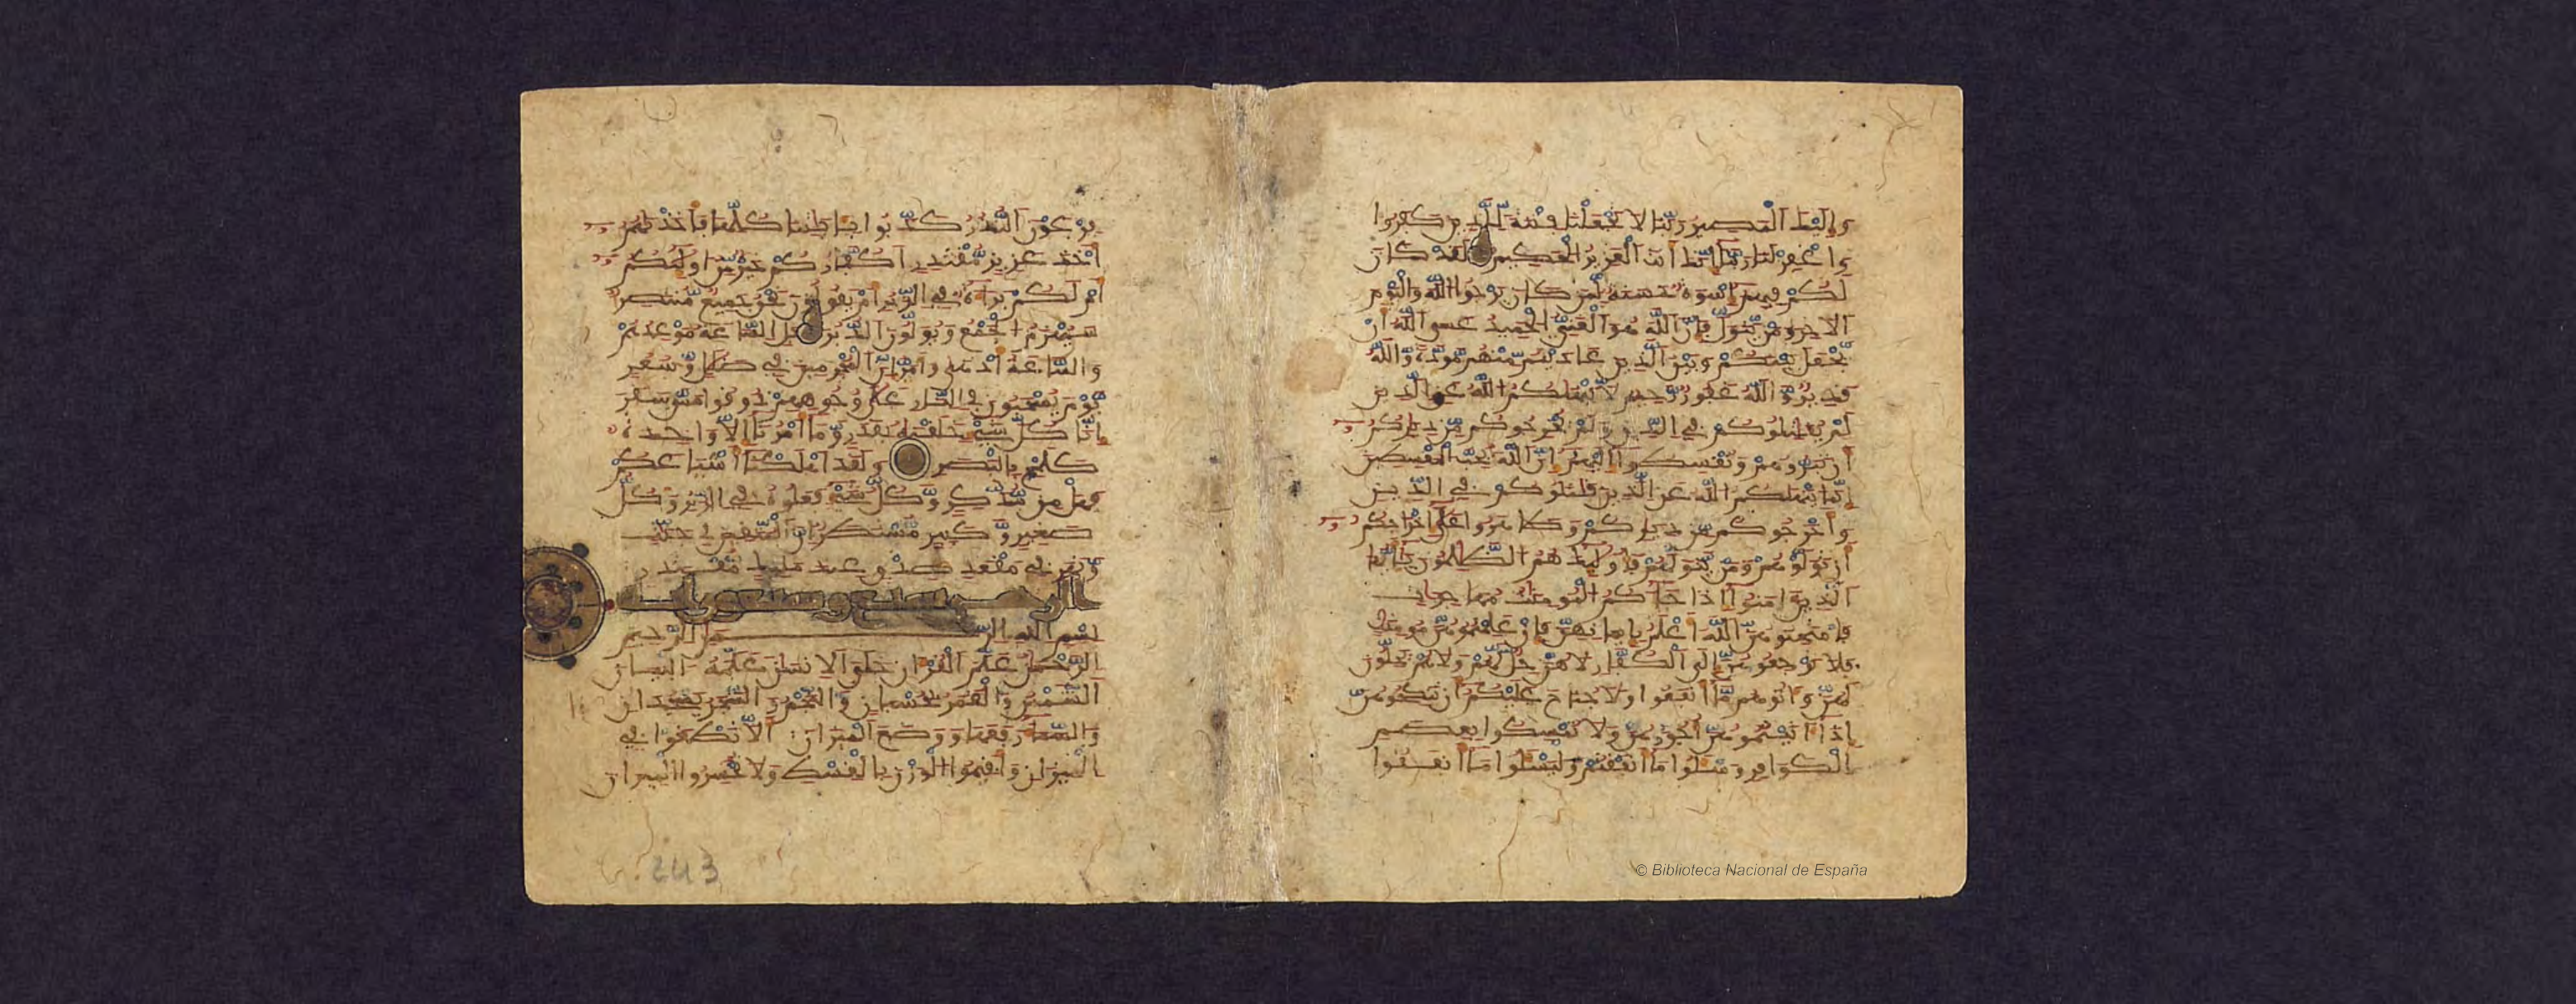 واليك المصير ربنا لا تجعلنا فتنة للذين كفروا
واغفر لنا ربنا انك انت العزيز الحكيم لقد كان
لكم فيهم اسوة حسنة لمن كان يرجوا الله واليوم
الاخر ومن يتول فان الله هو الغني الحميد عسى الله ان
يجعل بينكم وبين الذين عاديتم منهم مودة والله
قدير والله غفور رحيم لا ينهيكم الله عن الذين
لم يقتلوكم في الدين ولم يخرجوكم من ديركم
ان تبروهم وتقسطوا اليهم ان الله يحب المقسطين
انما ينهيكم الله عن الذين قتلوكم في الدين
واخرجوكم من ديركم وظهروا على اخراجكم
ان تولوهم ومن يتولهم فاوليك هم الظلمون يايها
الذين امنوا اذا جاكم المومنت مهجرت
فامتحنوهن الله اعلم بايمنهن فان علمتموهن مومنت
فلا ترجعوهن الى الكفار لا هن حل لهم ولا هم يحلون
لهن واتوهم ما انفقوا ولا جناح عليكم ان تنكحوهن
اذا اتيتموهن اجورهن ولا تمسكوا بعصم
الكوافر وسلوا ما انفقتم وليسلوا ما انفقوا
فرعون النذر كذبوا بايتنا كلها فاخذنهم
اخذ عزيز مقتدر اكفاركم خير من اوليكم
ام لكم براة في الزبر ام يقولون نحن جميع منتصر
سيهزم الجمع ويولون الدبر بل الساعة موعدهم
والساعة ادهى وامر ان المجرمين في ضلل وسعر
يوم يسحبون في النار على وجوههم ذوقوا مس سقر
انا كل شي خلقنه بقدر وما امرنا الا وحدة
كلمح بالبصر ولقد اهلكنا اشياعكم
فهل من مدكر وكل شي فعلوه في الزبر وكل
صغير وكبير مستطر ان المتقين في جنت
ونهر في مقعد صدق عند مليك مقتدر
الرحمن سبع وسبعون اية
بسم الله الرحمن الرحيم
الرحمن علم القران خلق الانسن علمه البيان
الشمس والقمر بحسبان والنجم والشجر يسجدان
والسما رفعها ووضع الميزان الا تطغوا في
الميزان واقيموا الوزن بالقسط ولا تخسروا الميزان
243
© Biblioteca Nacional de España